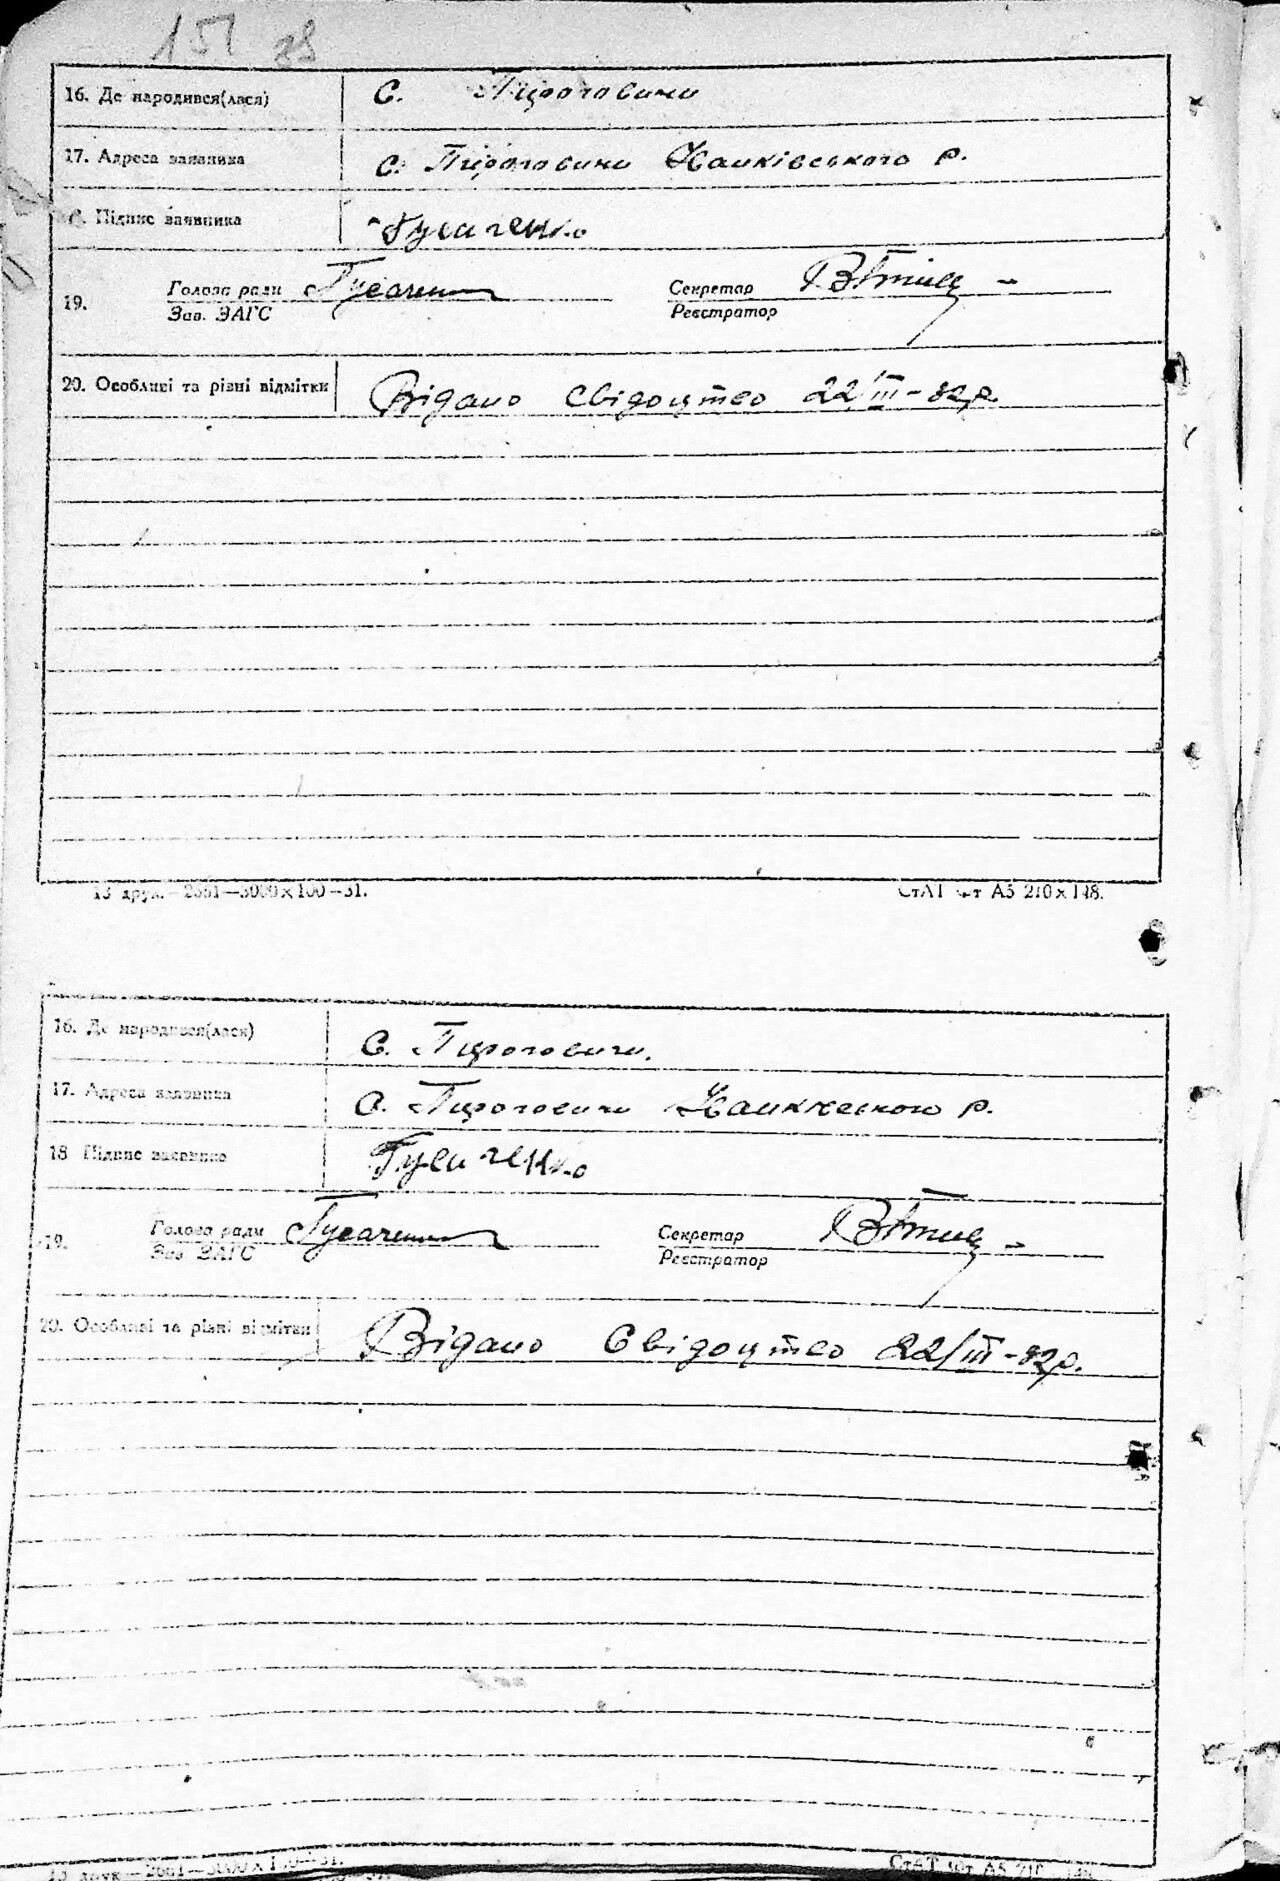 151 зв
16. Де народився(лася) С. Пироговичи
17. Адреса заявника С. Пироговичи Хамківського р.
18. Підпис заявника Гусаченко
19. Голова ради Гусаченко Секретар
Зав. ЗАГС Реєстратор
20. Особливі та різні відмітки Відано Свідоцтво 22/III-32р.
13 друк.—2661—3000х100—31.
СтАТ фт А5 210х148.
16. Де народився(лася) С. Пироговичи.
17. Адреса заявника С. Пироговичи р.
18 Підпис заявника Гусаченко
19. Голова ради Гусаченко Секретар
Зав ЗАГС Реєстратор
20. Особливі та різні відмітки Відано Свідоцтво 22/III-32р.
13 друк—2661—3000х100—31.
СтАТ фт А5 210х148